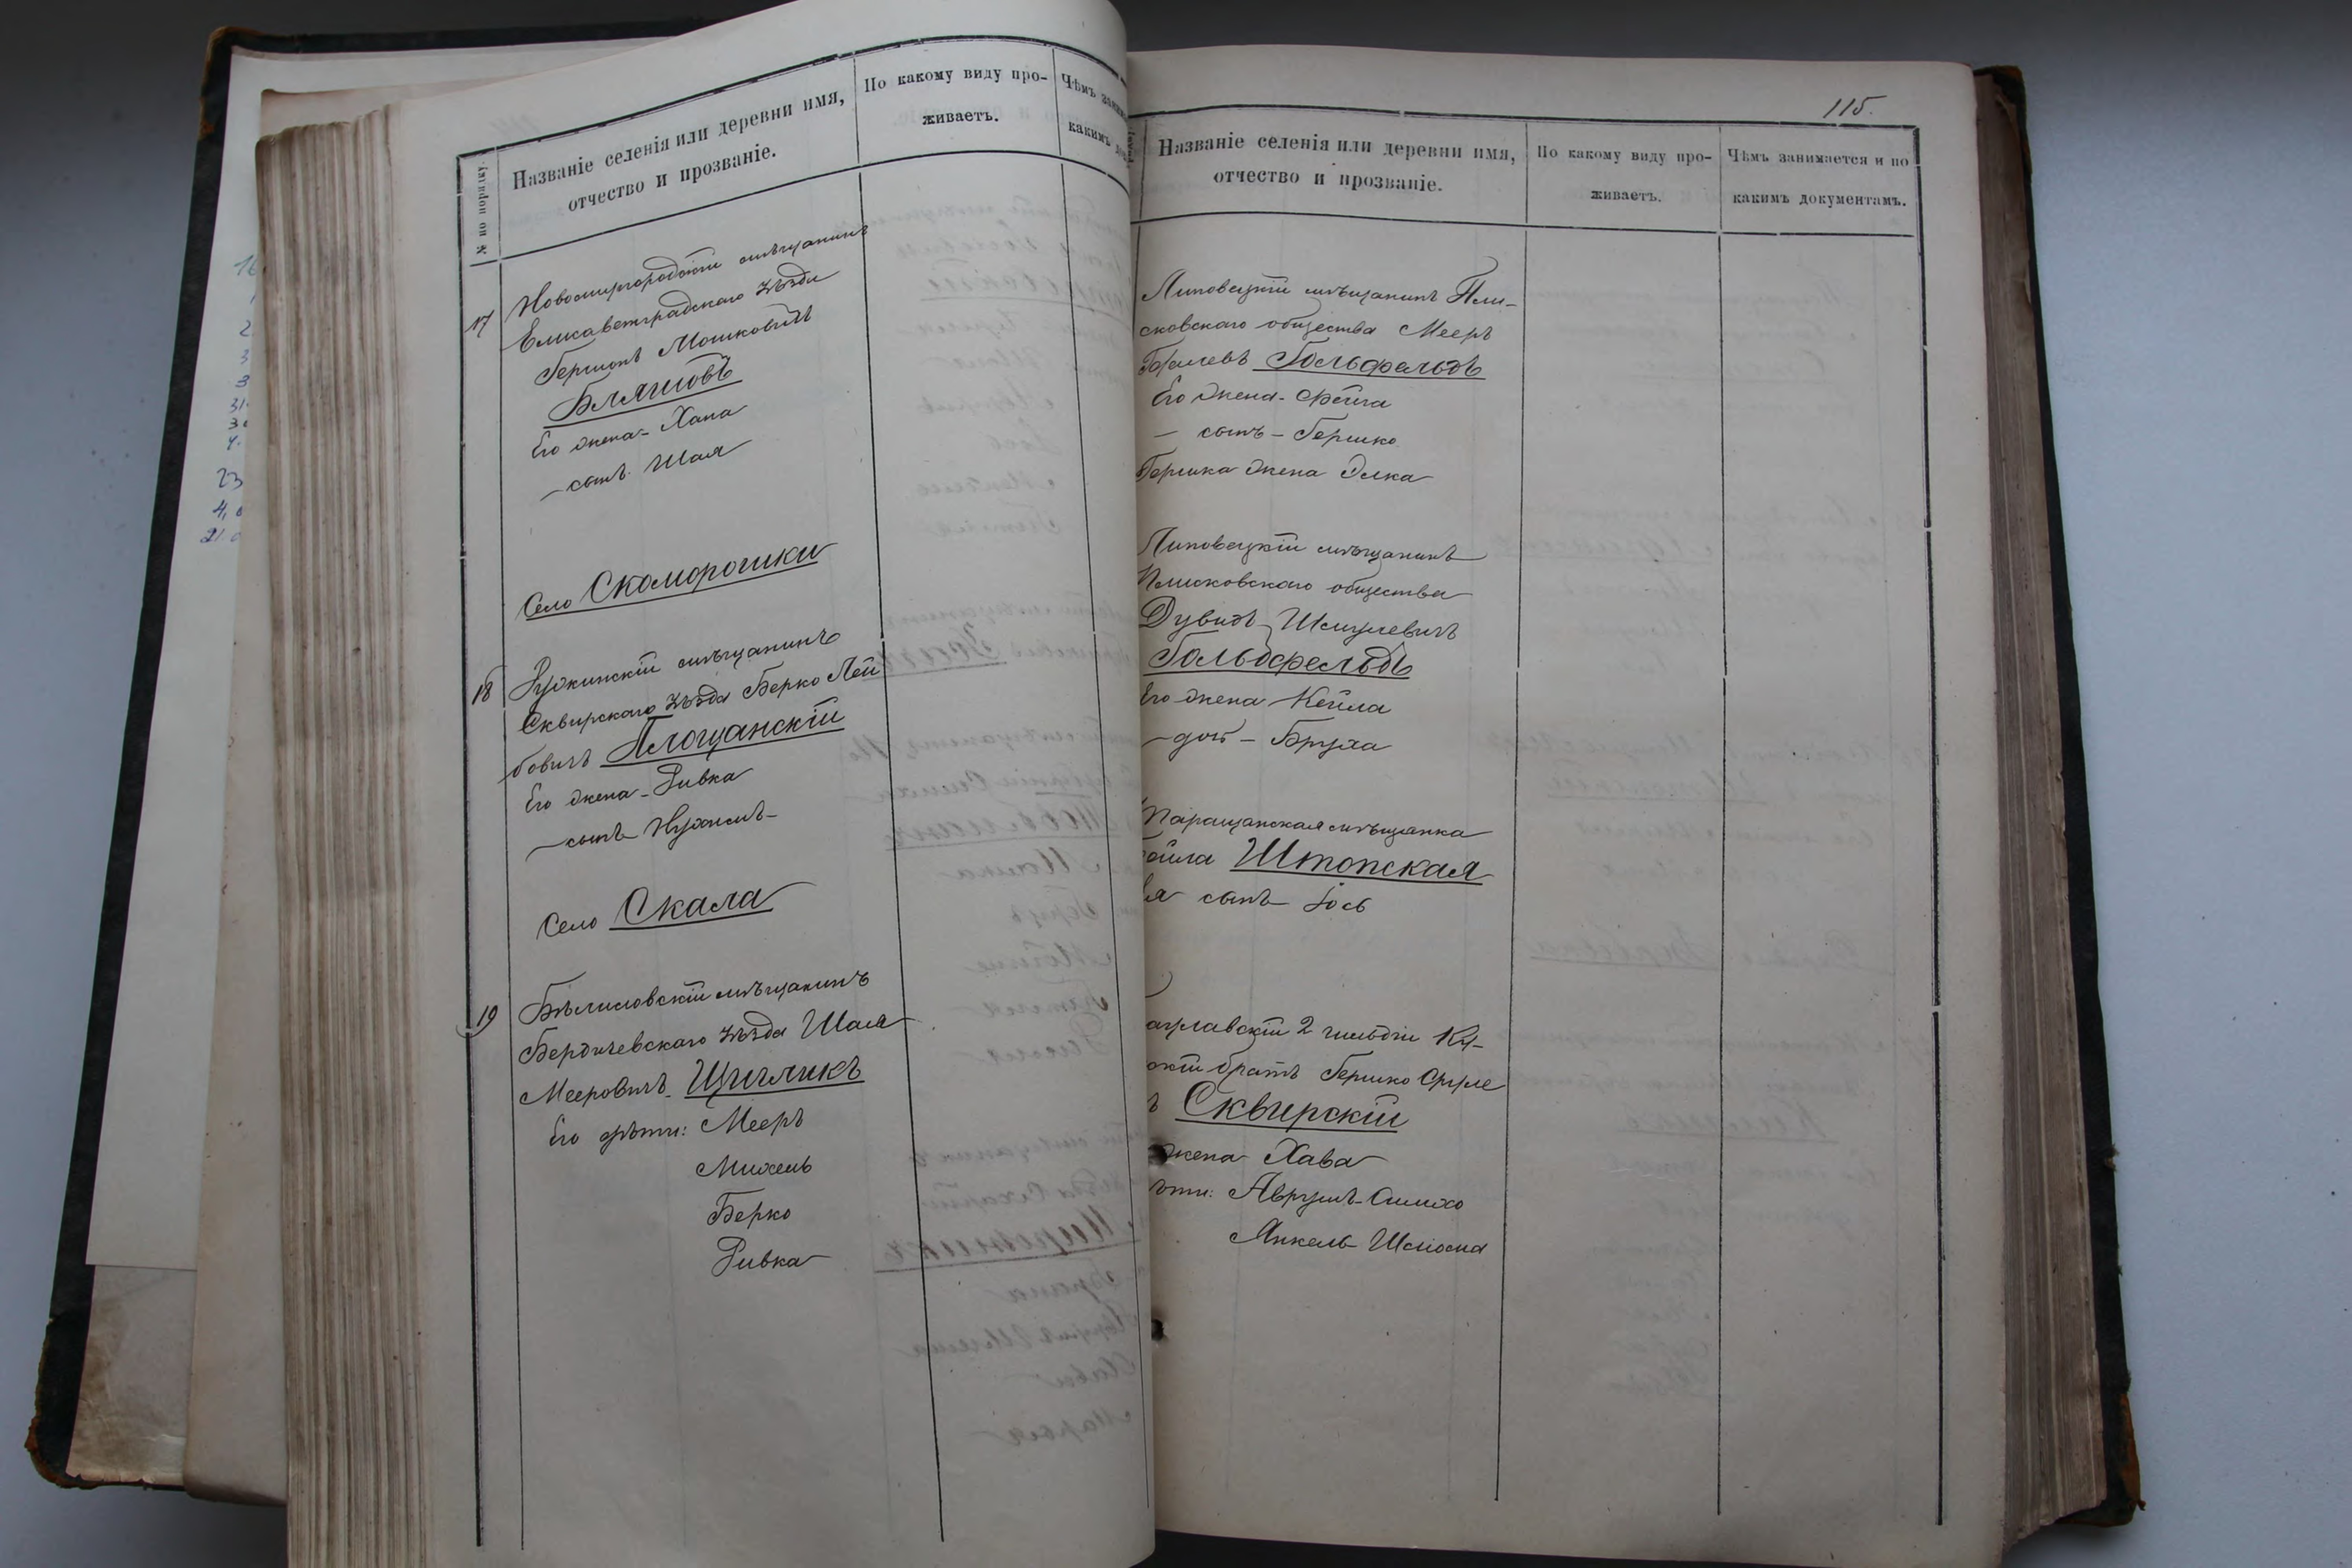 № по порядку.
Названіе селенія или деревни имя,
отчество и прозваніе.
По какому виду про-
живаетъ.
Чѣмъ
какимъ
17
Новомиргородскій мѣщанинъ
Елисаветградскаго уѣзда
Гершонъ Мошковичъ
Бляховъ
Его жена - Хана
- сынъ Шая
Село Скоморошки
18
Ружинскій мѣщанинъ
Сквирскаго уѣзда Берко Лей
бовичъ Площанскій
Его жена - Ривка
- сынъ Нухимъ -
Село Скала
19
Бѣлиловскій мѣщанинъ
Бердичевскаго уѣзда Шая
Мееровичъ Щигликъ
Его дѣти: Мееръ
Михель
Берко
Ривка
115.
Названіе селенія или деревни имя,
отчество и прозваніе.
По какому виду про-
живаетъ.
Чѣмъ занимается и по
какимъ документамъ.
Липовецкій мѣщанинъ Пли-
сковскаго общества Мееръ
Гольдфельдъ
Его жена - Фейга
- сынъ - Гершко
Гершка жена Элка
Липовецкій мѣщанинъ
Плисковскаго общества
Дувидъ Шмулевичъ
Гольдфельдъ
Его жена Кейла
- дочь - Бруха
Таращанская мѣщанка
Штопская
сынъ Іось
2 гильдіи Ку-
братъ Гершко Сруле
Сквирскій
жена Хава
Аврумъ-Симхо
Янкель Шлиома